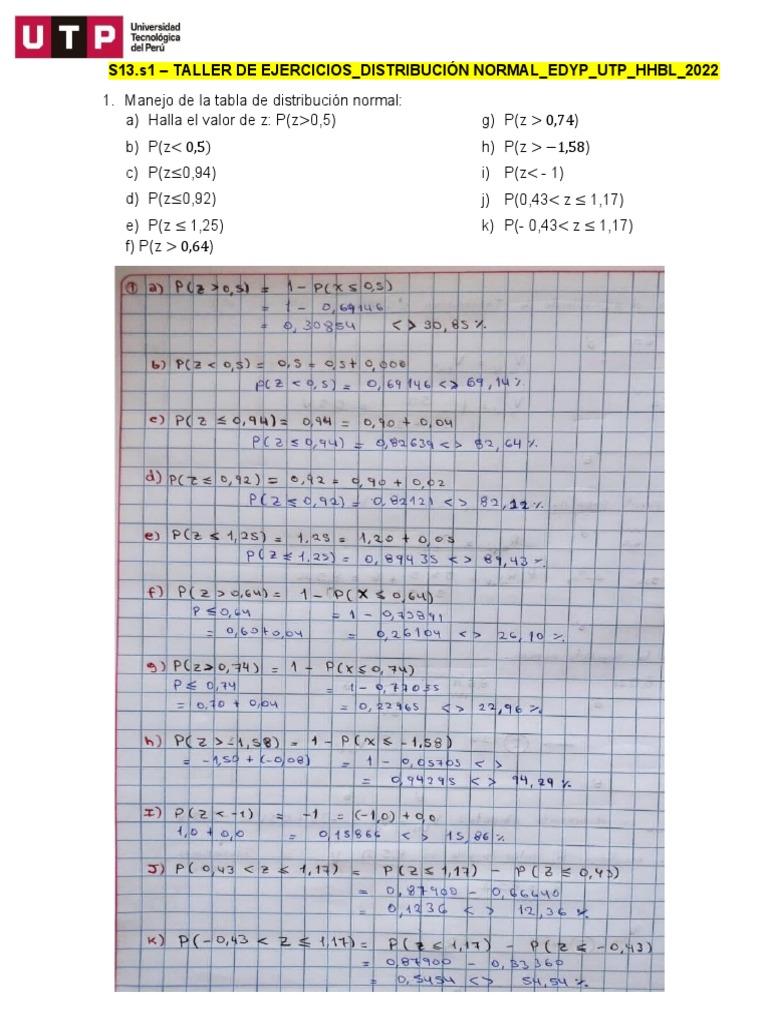 UTP Universidad
Tecnológica
del Perú
S13.s1 – TALLER DE EJERCICIOS_DISTRIBUCIÓN NORMAL_EDYP_UTP_HHBL_2022
1. Manejo de la tabla de distribución normal:
a) Halla el valor de z: P(z>0,5)
b) P(z< 0,5)
c) P(z≤0,94)
d) P(z≤0,92)
e) P(z ≤ 1,25)
f) P(z > 0,64)
g) P(z > 0,74)
h) P(z > −1,58)
i) P(z< - 1)
j) P(0,43< z ≤ 1,17)
k) P(- 0,43< z ≤ 1,17)
① a) P(z>0,5) = 1 - P(X ≤ 0,5)
= 1 - 0,69146
= 0,30854 <> 30,85 %
b) P(z < 0,5) = 0,5 = 0,5 + 0,000
P(z < 0,5) = 0,69146 <> 69,14 %
c) P(z ≤ 0,94) = 0,94 = 0,90 + 0,04
P(z ≤ 0,94) = 0,82639 <> 82,64 %
d) P(z ≤ 0,92) = 0,92 = 0,90 + 0,02
P(z ≤ 0,92) = 0,82121 <> 82,12 %
e) P(z ≤ 1,25) = 1,25 = 1,20 + 0,05
P(z ≤ 1,25) = 0,89435 <> 89,43 %
f) P(z > 0,64) = 1 - P(X ≤ 0,64)
P ≤ 0,64 = 1 - 0,73891
= 0,60 + 0,04 = 0,26104 <> 26,10 %
g) P(z > 0,74) = 1 - P(X ≤ 0,74)
P ≤ 0,74 = 1 - 0,77035
= 0,70 + 0,04 = 0,22965 <> 22,96 %
h) P(z > -1,58) = 1 - P(X ≤ -1,58)
= -1,50 + (-0,08) = 1 - 0,05705 <>
= 0,94295 <> 94,29 %
I) P(z < -1) = -1 = (-1,0) + 0,0
1,0 + 0,0 = 0,15866 <> 15,86 %
J) P(0,43 < z ≤ 1,17) = P(z ≤ 1,17) - P(z ≤ 0,43)
= 0,87900 - 0,66640
= 0,1236 <> 12,36 %
K) P(-0,43 < z ≤ 1,17) = P(z < 1,17) - P(z ≤ -0,43)
= 0,87900 - 0,33360
= 0,5454 <> 54,54 %